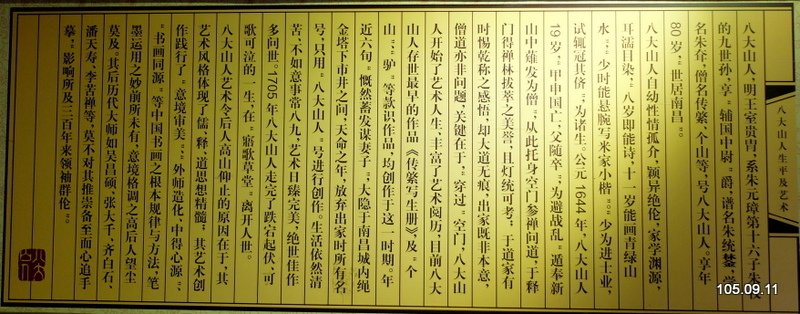 八大山人生平及艺术
八大山人，明王室贵胄，系朱元璋第十六子朱权
的九世孙，享“辅国中尉”爵，谱名朱统
名朱耷，僧名传綮，个山等，号八大山人。享年
80岁，世居南昌。
八大山人自幼性情孤介，颖异绝伦，家学渊源，
耳濡目染，“八岁即能诗，十一岁能画青绿山
水”，“少时能悬腕写米家小楷”。“少为进士业，
试辄冠其侪”，为诸生。公元1644年，八大山人
19岁，“甲申国亡，父随卒”，为避战乱，“遁奉新
山中薙发为僧”，从此托身空门参禅问道，于释
门得禅林拔萃之美誉，且灯统可考；于道家有
时惕乾称之感悟，却大道无痕，出家既非本意，
僧道亦非问题，关键在于，“穿过”空门，八大山
人开始了艺术人生，丰富了艺术阅历，目前八大
山人存世最早的作品《传綮写生册》，及“个
山”、“驴”等款识作品，均创作于这一时期。年
近六旬，“慨然蓄发谋妻子”，大隐于南昌城内绳
金塔下市井之间，天命之年，放弃出家时所有名
号，只用“八大山人”号进行创作。生活依然清
苦，不如意事常八九，艺术日臻完美，绝世佳作
多问世。1705年八大山人走完了跌宕起伏、可
歌可泣的一生，在“寤歌草堂”离开人世。
八大山人艺术令后人高山仰止的原因在于，其
艺术风格体现了儒、释、道思想精髓；其艺术创
作践行了“意境审美”、“外师造化、中得心源”、
“书画同源”等中国书画之根本规律与方法，笔
墨运用之妙前所未有，意境格调之高后人望尘
莫及。其后历代大师如吴昌硕、张大千、齐白石、
潘天寿、李苦禅等，莫不对其推崇备至而心追手
摹，“影响所及三百年来领袖群伦”。
105.09.11